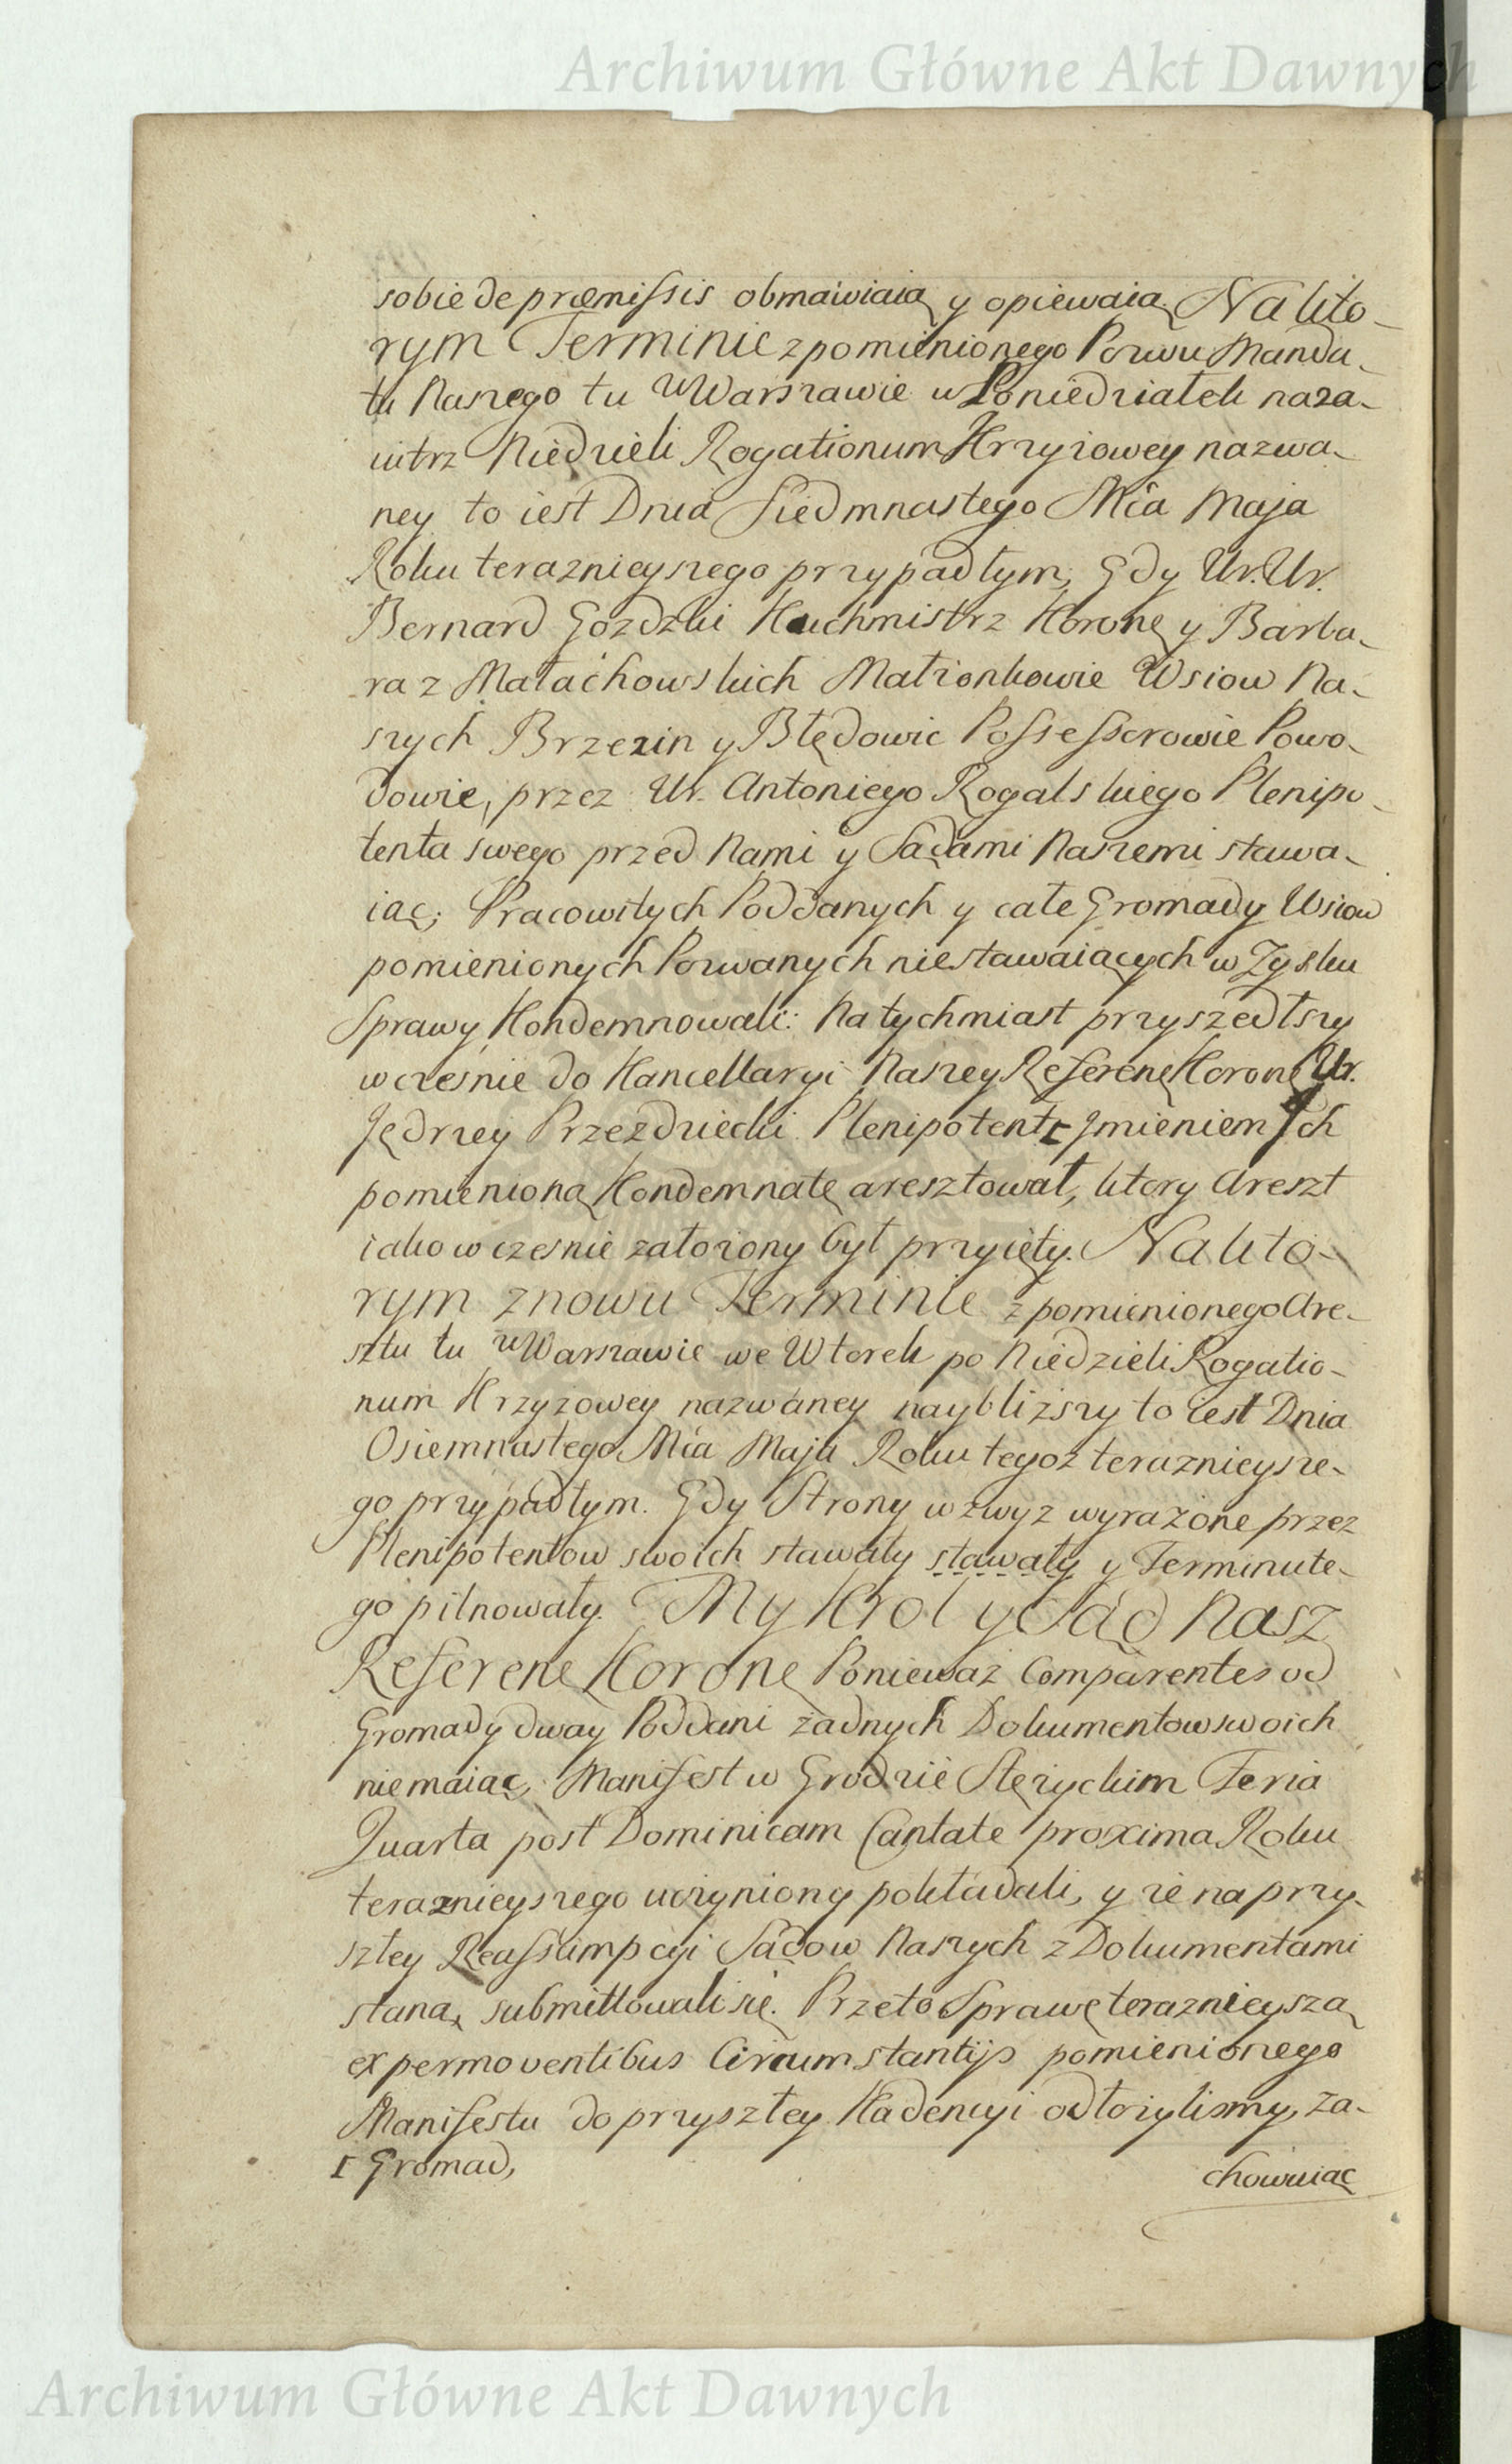 Archiwum Główne Akt Dawnych
sobie de præmissis obmawiaią y opiewaią. Na kto-
rym Terminie z pomienionego Pozwu Manda-
tu Naszego tu w Warszawie w Poniedziałek naza-
iutrz Niedzieli Rogationum Krzyżowey nazwa-
ney to iest Dnia Siedmnastego Mca Maja
Roku teraznieyszego przypadłym, Gdy Ur. Ur.
Bernard Gozdzki Kuchmistrz Koronę y Barba-
ra z Małachowskich Małżonkowie Wsiow Na-
szych Brzezin y Błędowic Possessorowie Powo-
dowie, przez Ur. Antoniego Rogalskiego Plenipo-
tenta swego przed Nami y Sądami Naszemi stawa-
iąc; Pracowitych Poddanych y całe Gromady Wsiow
pomienionych Pozwanych niestawaiących w Zysku
Sprawy Kondemnowali: Natychmiast przyszedłszy
wczesnie do Kancellaryi Naszey Referenę Koronę Ur.
Jędrzey Przezdziecki Plenipotent Ɪ Jmieniem Jch
pomienioną Kondemnatę aresztował, ktory Areszt
iako wczesnie założony był przyięty. Na kto-
rym znowu Terminie z pomienionego Are-
sztu tu w Warszawie we Wtorek po Niedzieli Rogatio-
num Krzyżowey nazwaney naybliższy to iest Dnia
Osiemnastego Mca Maja Roku tegoż teraznieysze-
go przypadłym. Gdy Strony wzwyz wyrażone przez
Plenipotentow swoich stawały stawały y Terminu te-
go pilnowały. My Krol y Sąd Nasz
Referenę Koronę Ponieważ Comparentes od
Gromady dway Poddani żadnych Dokumentow swoich
niemaiąc, Manifest w Grodzie Stężyckim Feria
Quarta post Dominicam Cantate proxima Roku
teraznieyszego uczyniony pokładali, y że na przy-
szłey Reassumpcyi Sądow Naszych z Dokumentami
staną, submittowali się. Przeto Sprawę teraznieyszą
ex permoventibus Circumstantijs pomienionego
Manifestu do przyszłey Kadencyi odłożylismy, za-
Ɪ Gromad,
chowuiąc
Archiwum Główne Akt Dawnych